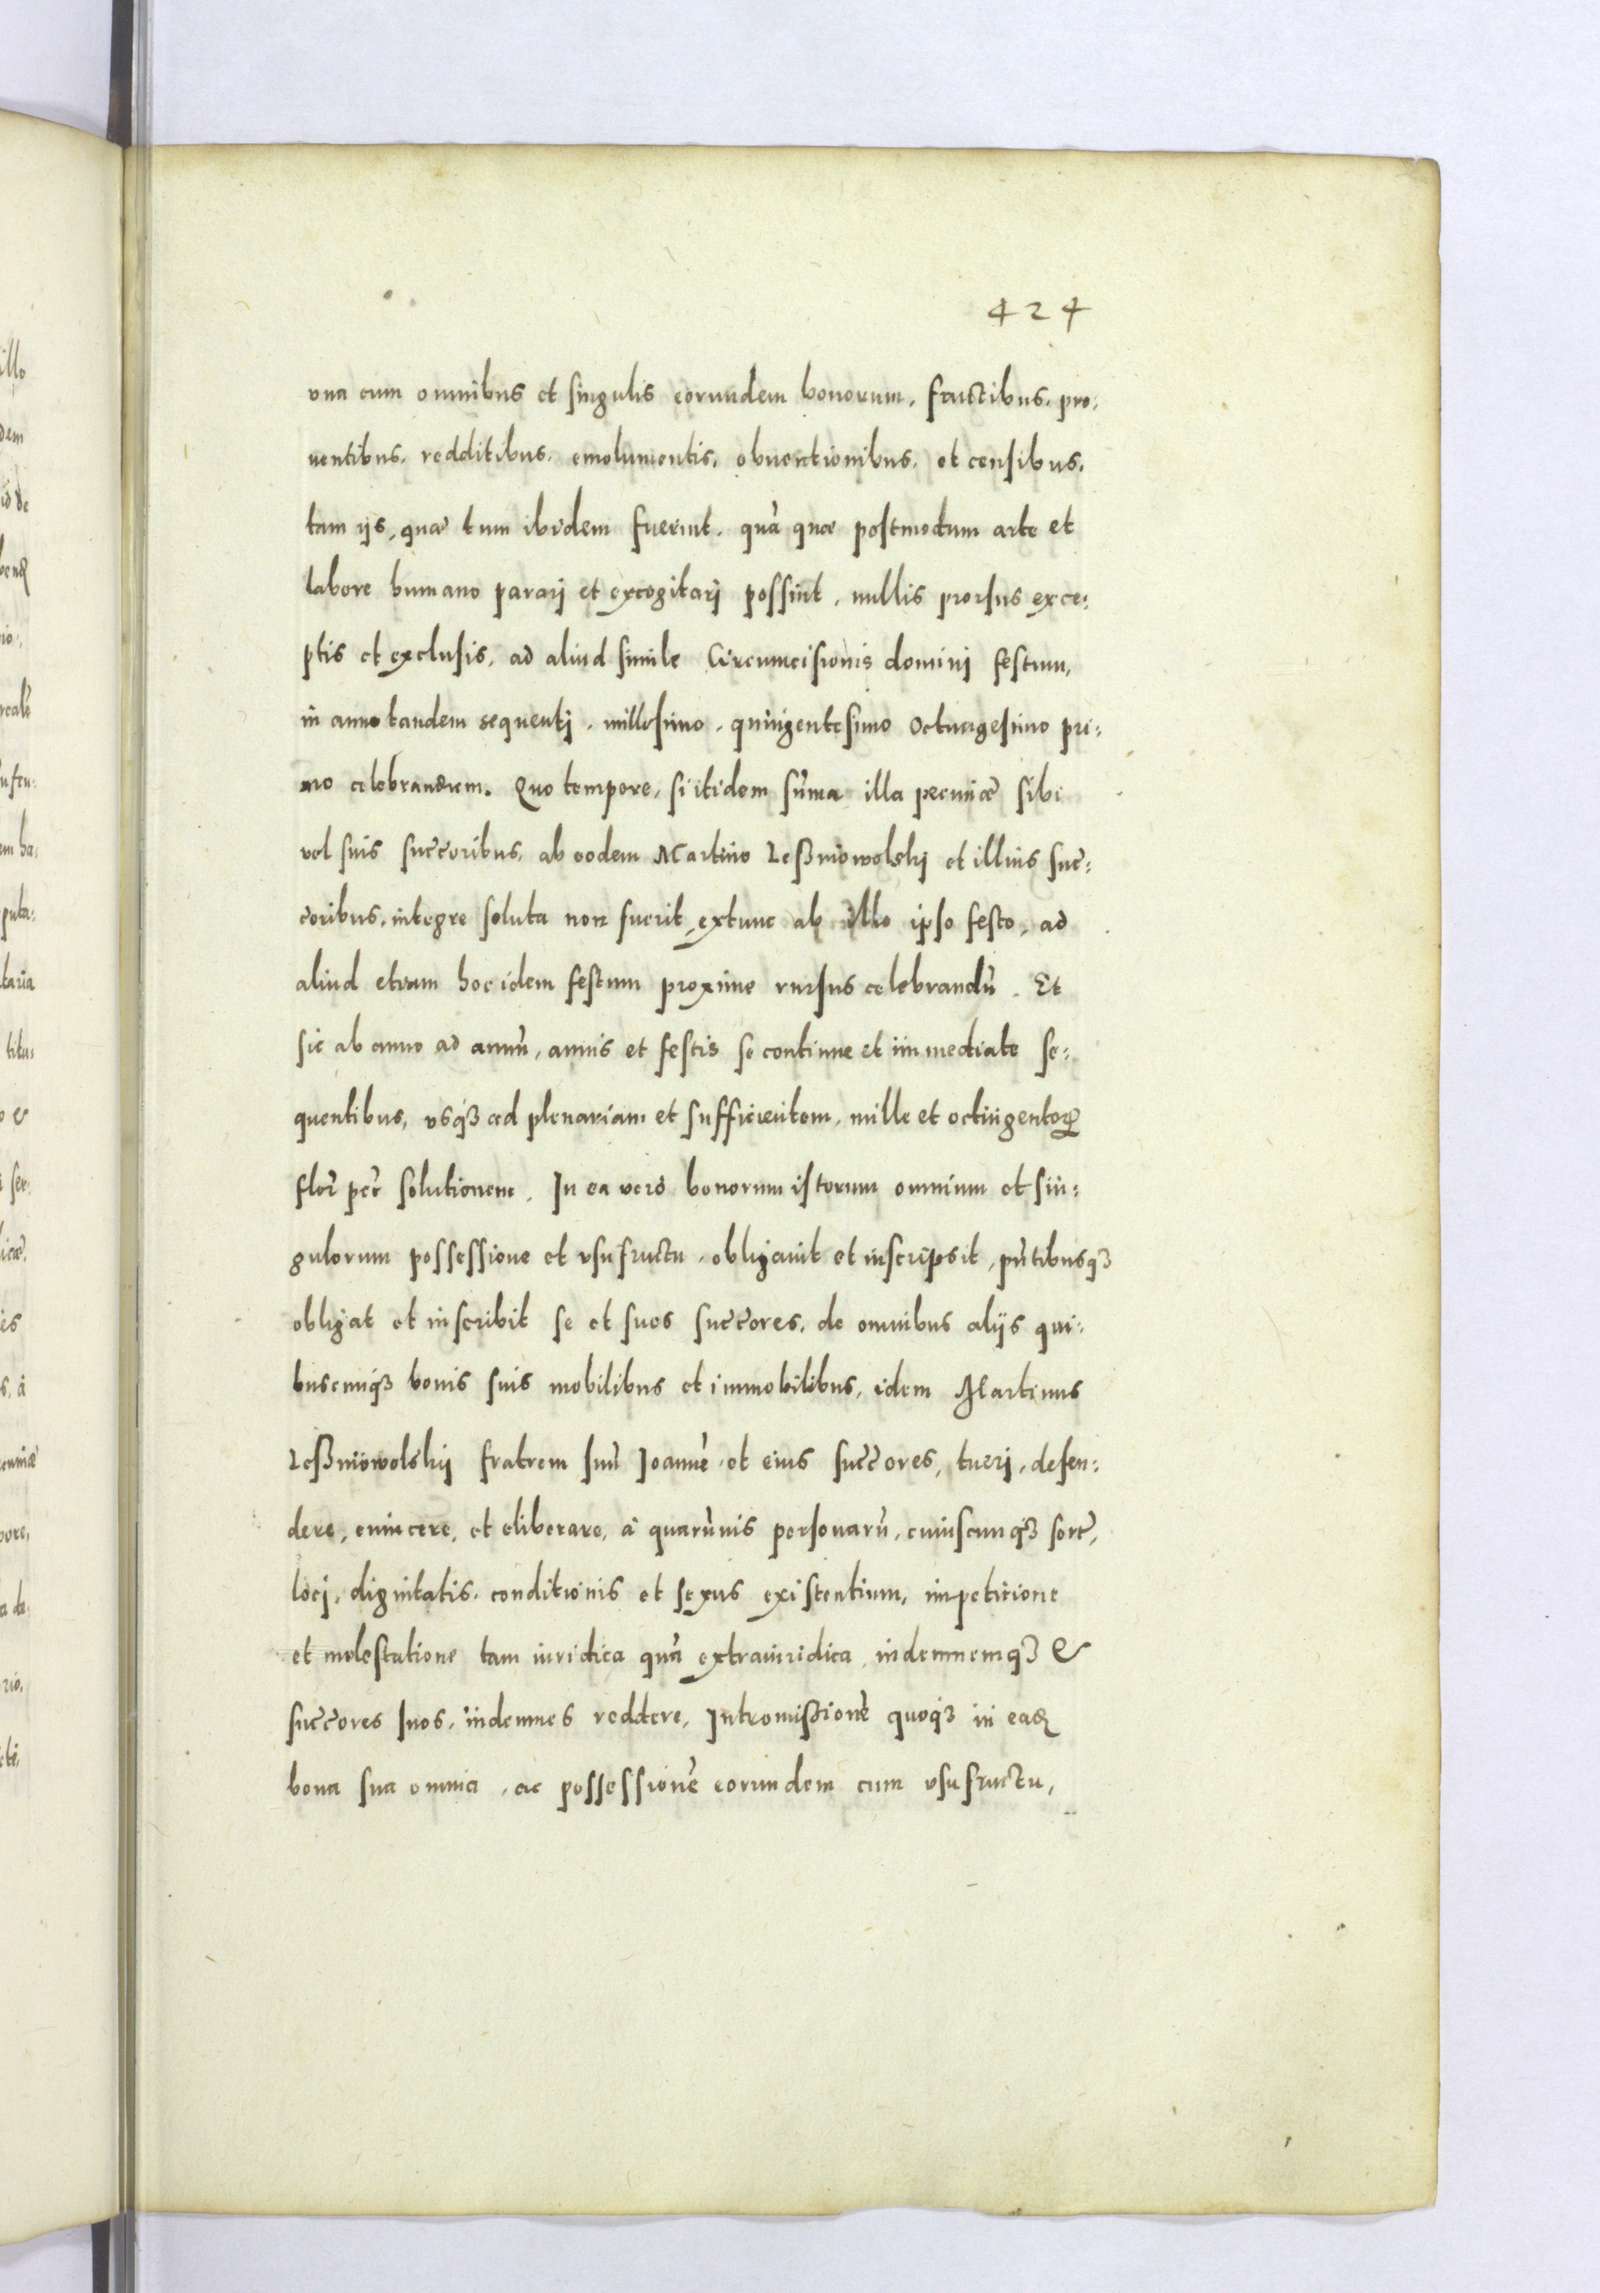 424
vna cum omnibus et singulis eorundem bonorum, fructibus, pro:
uentibus, redditibus, emolumentis, obuentionibus, et censibus,
tam ijs, quæ tum ibidem fuerint, quã quæ postmodum arte et
labore humano pararj et excogitarj possint, nullis prorsus exce:
ptis et exclusis, ad aliud simile Circumcisionis dominj festum,
in anno tandem sequentj, millesimo, quingentesimo octuagesimo pri:
mo celebrandum. Quo tempore, si itidem sũma illa pecuniæ sibi
vel suis succ̃oribus, ab eodem Martino Leßniowolskj et illius suc̃:
c̃oribus, integre soluta non fuerit, extunc ab illo ipso festo, ad
aliud etiam hoc idem festum proxime rursus celebrandũ. Et
sic ab anno ad annũ, annis et festis se continue et immediate se:
quentibus, vsq₃ ad plenariam et sufficientem, mille et octingentoꝝ
flor̃ pec̃ solutionem. In ea vero bonorum istorum omnium et sin:
gulorum possessione et vsufructu, obligauit et inscripsit, pñtibusq₃
obligat et inscribit se et suos succ̃ores, de omnibus alijs qui:
buscunq₃ bonis suis mobilibus et immobilibus, idem Martinus
Leßniowolskij fratrem suũ Joannẽ et eius succ̃ores, tuerj, defen:
dere, euincere, et eliberare, à quarũuis personarũ, cuiuscunq₃ sort̃,
locj, dignitatis, conditionis et sexus existentium, impeticione
et molestatione tam iuridica quã extraiuridica, indemnemq₃ &
succ̃ores suos, indemnes reddere, Intromißionẽ quoq₃ in eadẽ
bona sua omnia, ac possessionẽ eorundem cum vsufructu,